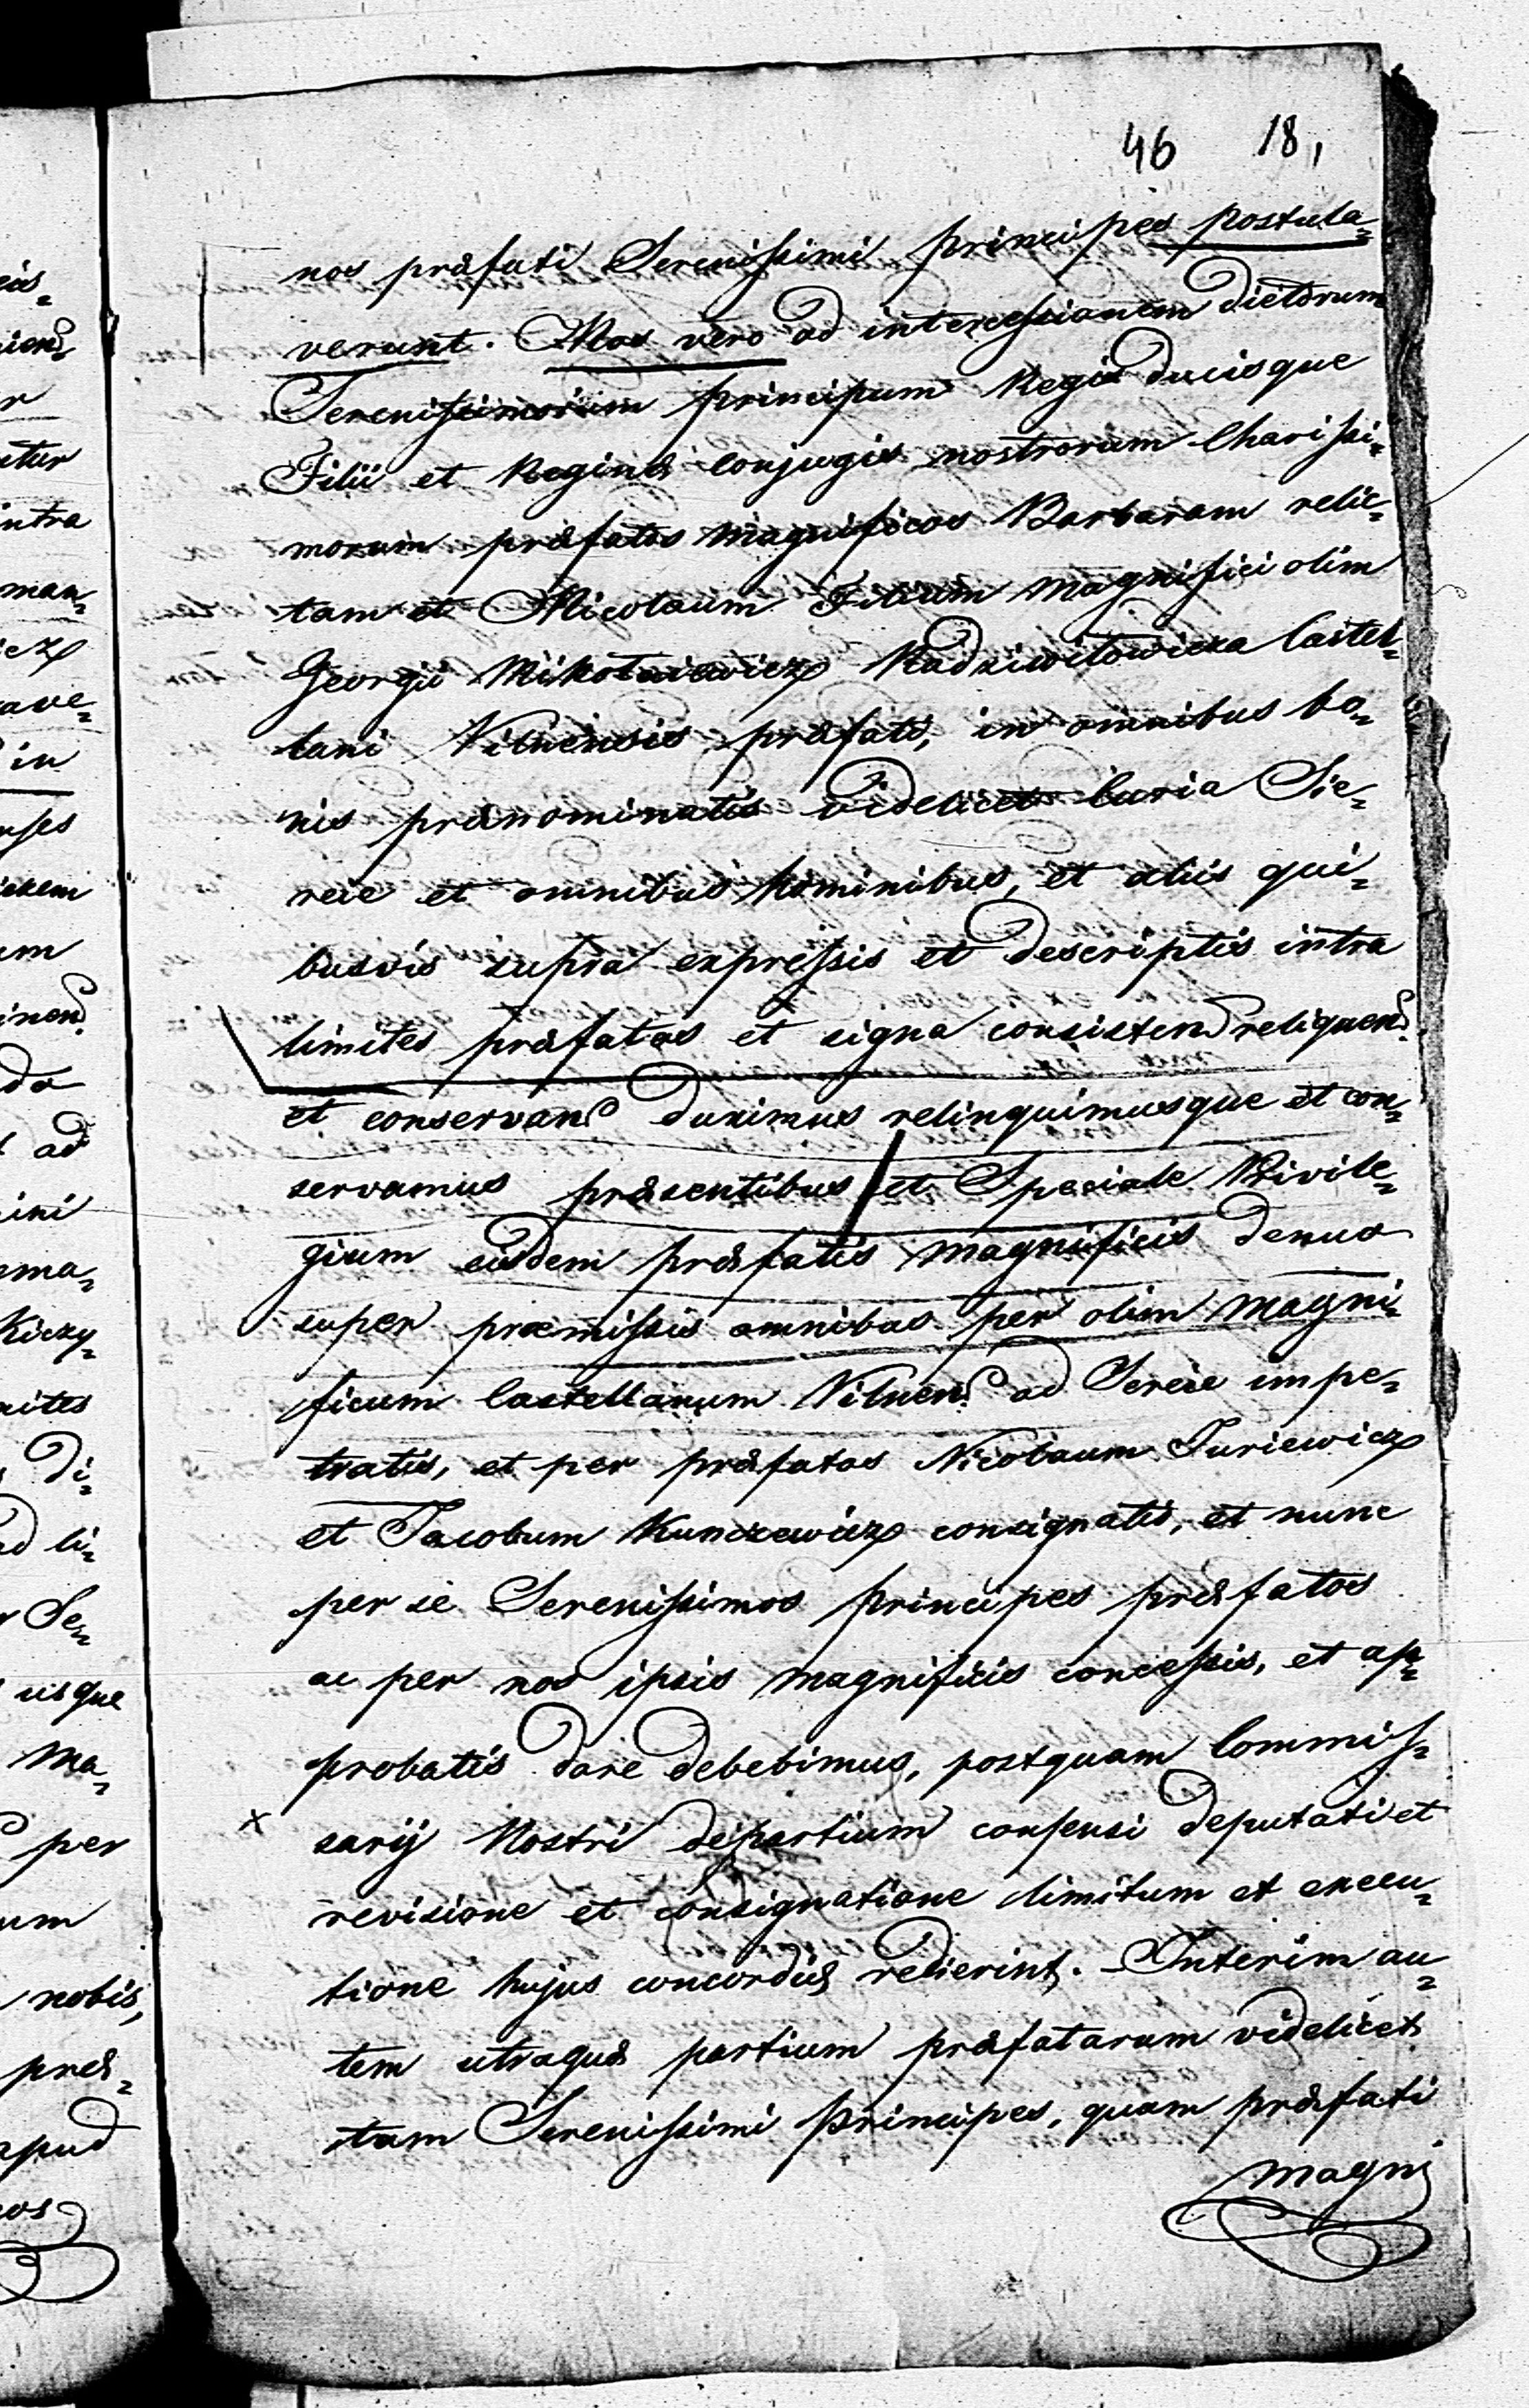 46 18,
nos præfati Serenissimi principes postula=
verunt. Nos vero ad intercessionem dictorum
Serenissimorum principum Regis ducisque
Filii et Reginæ conjugis nostrorum Charissi=
morum præfatos magnificos Barbaram relic=
tam et Nicolaum Filium magnifici olim
Georgii Mikołaiewicz Radziwiłowicza Castel=
lani Vilnensis præfati, in omnibus bo=
nis prænominatis videlicet Curia Sie=
reie et omnibus hominibus, et aliis qui=
busvis supra expressis et descriptis intra
limites præfatas et signa consisten. reliquen.
et conservan. duximus relinquimusque et con=
servamus præsentibus et Speciale Privile=
gium eisdem præfatis magnificis denuo
super præmissis omnibus per olim magni=
ficum Castellanum Vilnen. ad Sereie impe=
tratis, et per præfatos Nicolaum Juriewicz
et Jacobum Kunczewicz consignatis, et nunc
per se Serenissimos principes præfatos
ac per nos ipsis magnificis concessis, et ap=
probatis dare debebimus, postquam Commis=
x sarij Nostri departium consensi deputati et
revisione et consignatione limitum et execu=
tione hujus concordiæ redierint. Interim au=
tem utraquæ partium præfatarum videlicet
tam Serenissimi principes, quam præfati
magni
eis=
r
intra
man=
icz
ave=
in
um
do
ad
ini
ma=
Kiczy=
mites
di=
li=
Se=
usque
Ma=
per
um
nobis,
præ=
apud